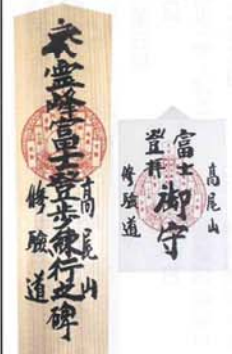 霊峰富士登歩練行之碑
高尾山
修験道
富士
登拝
御守
高尾山
修験道